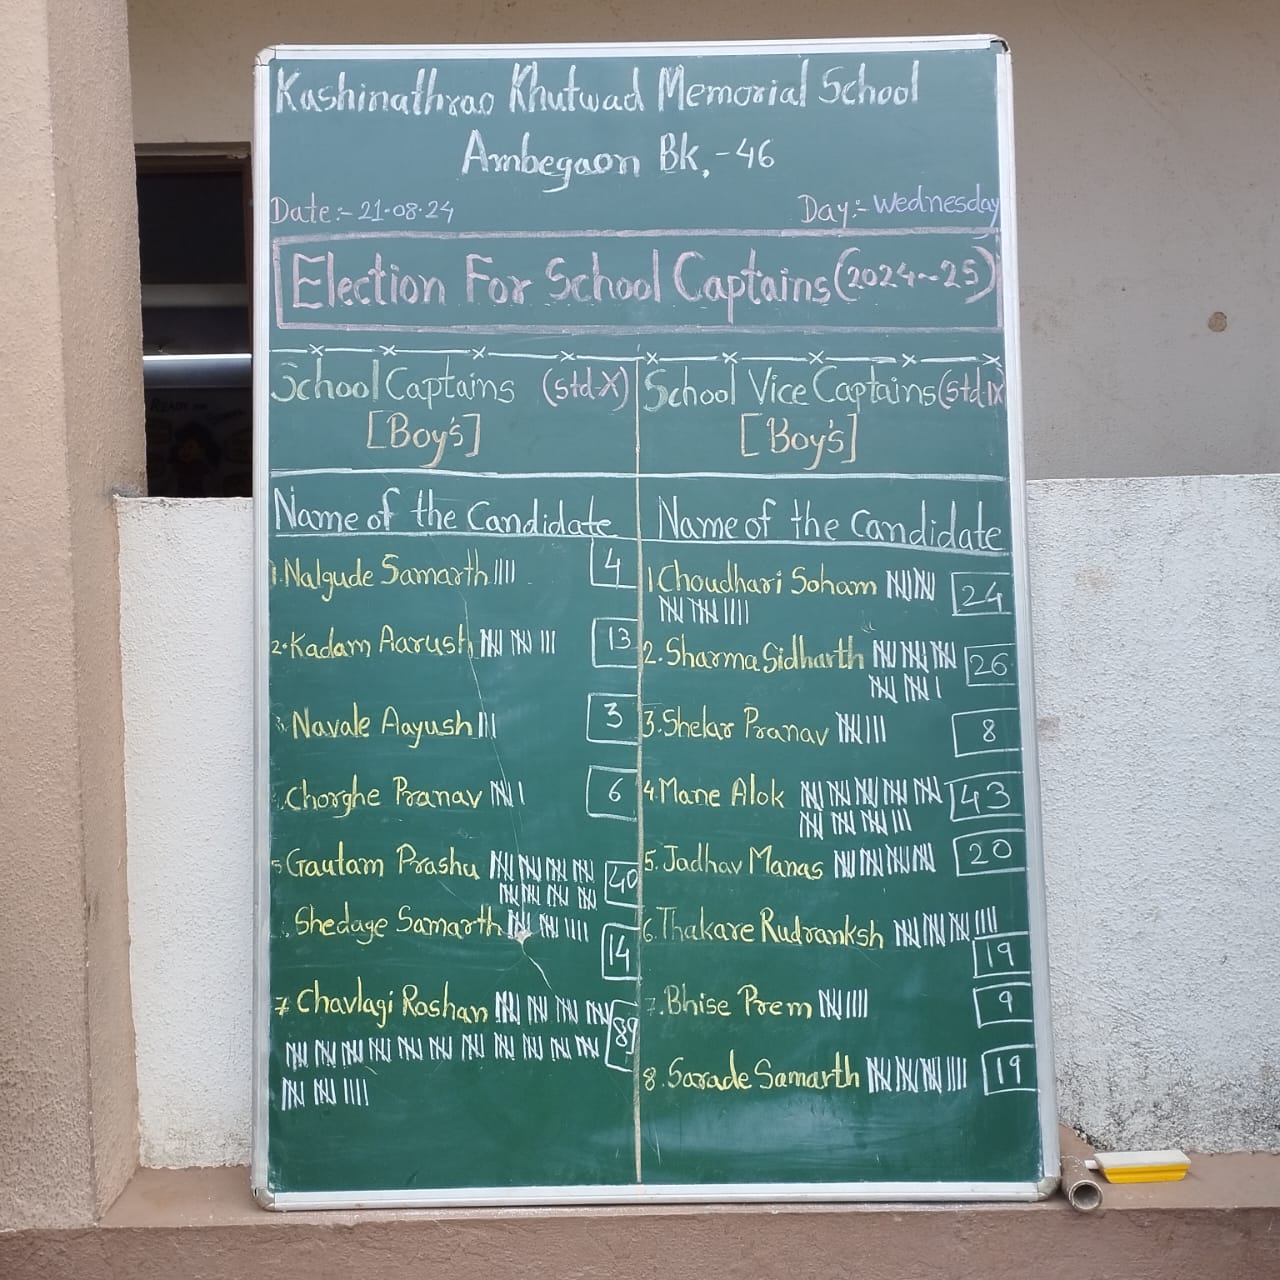 Kashinathrao Khutwad Memorial School
Ambegaon Bk,-46
Date:- 21.08.24 Day:- Wednesday
Election For School Captains (2024-25)
School Captains (Std-X)
[Boy's]
Name of the Candidate
1. Nalgude Samarth 4
2. Kadam Aarush 13
3. Navale Aayush 3
Chorghe Pranav 6
5 Gautam Prashu 40
Shedage Samarth 14
7. Chavlagi Roshan 89
School Vice Captains (Std IX
[Boy's]
Name of the Candidate
1 Choudhari Soham 24
2. Sharma Sidharth 26
3. Shelar Pranav 8
4. Mane Alok 43
5. Jadhav Manas 20
6. Thakare Rudranksh 19
7. Bhise Prem 9
8. Sarade Samarth 19